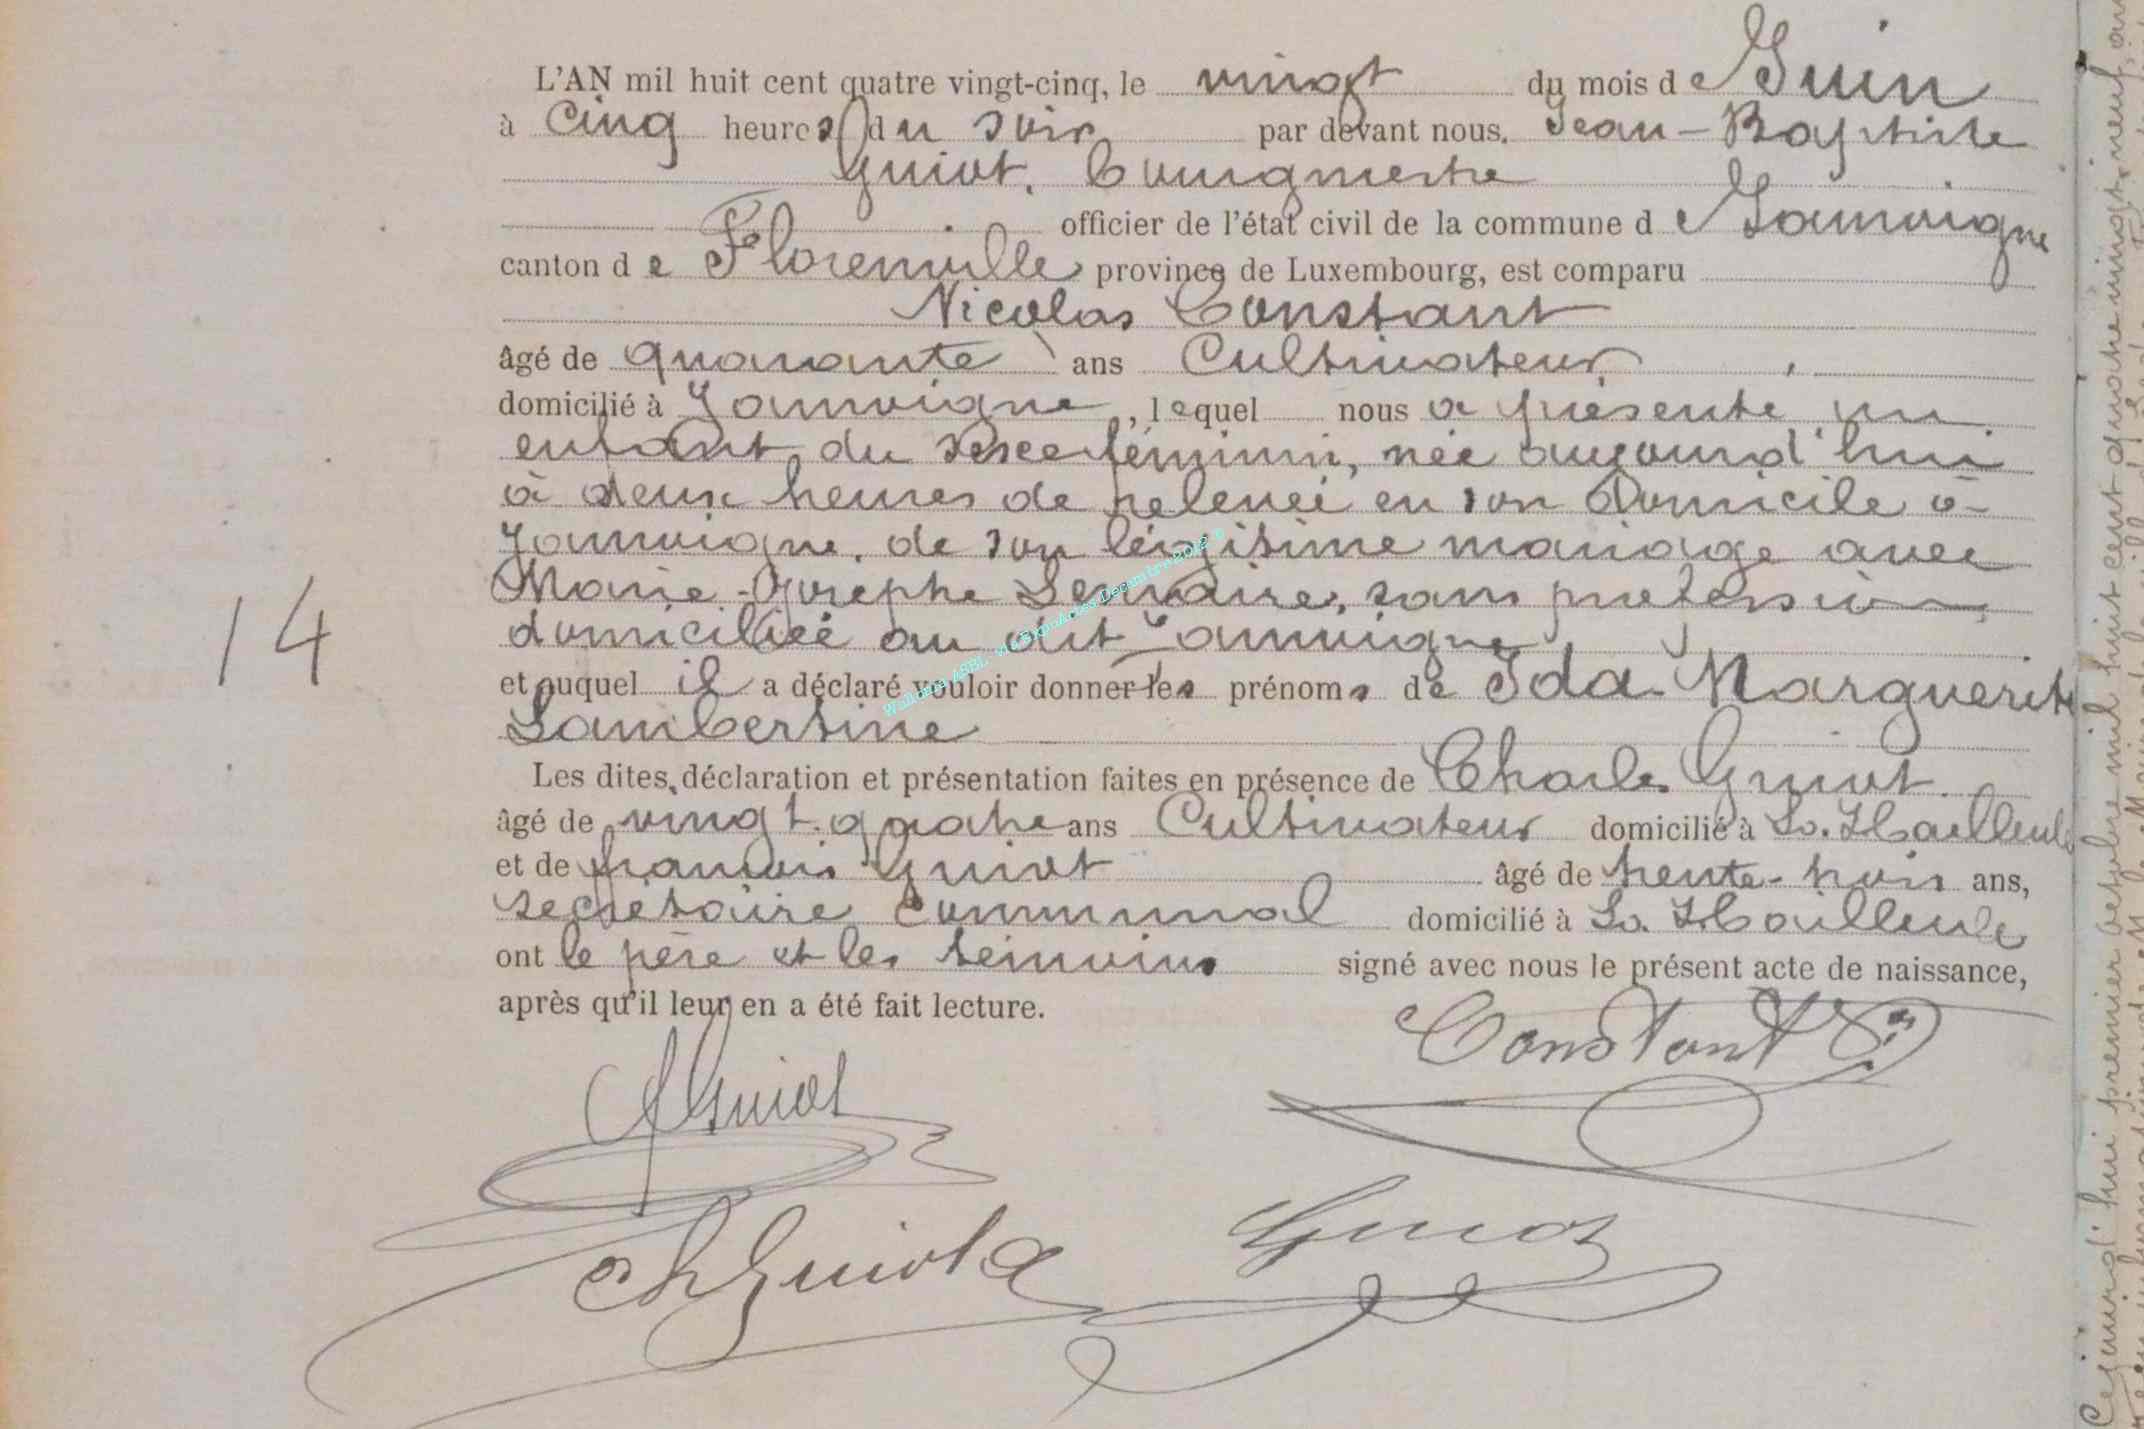 L'AN mil huit cent quatre vingt-cinq, le vingt du mois de Juin
à cinq heures du soir par devant nous. Jean-Baptiste
Guiot, bourgmestre
officier de l'état civil de la commune de Jamoigne
canton de Florenville province de Luxembourg, est comparu
Nicolas Constant
âgé de quarante ans Cultivateur,
domicilié à Jamoigne, lequel nous a présenté un
enfant du sexe féminin, née aujourd'hui
à deux heures de relevée en son domicile à
Jamoigne, de son légitime mariage avec
Marie-Josèphe Lemaire, sans profession,
domiciliée au dit Jamoigne
14
et auquel il a déclaré vouloir donner les prénoms de Ida Marguerite
Lambertine
Les dites déclaration et présentation faites en présence de Charles Guiot
âgé de vingt-quatre ans Cultivateur domicilié à La Hailleule
et de françois Guiot âgé de trente-trois ans,
secrétaire communal domicilié à La Hailleule
ont le père et les témoins signé avec nous le présent acte de naissance,
après qu'il leur en a été fait lecture.
Constant
Guiot
Ch Guiot
Guiot
Cejourd'hui premier octobre mil huit cent quatre vingt-neuf